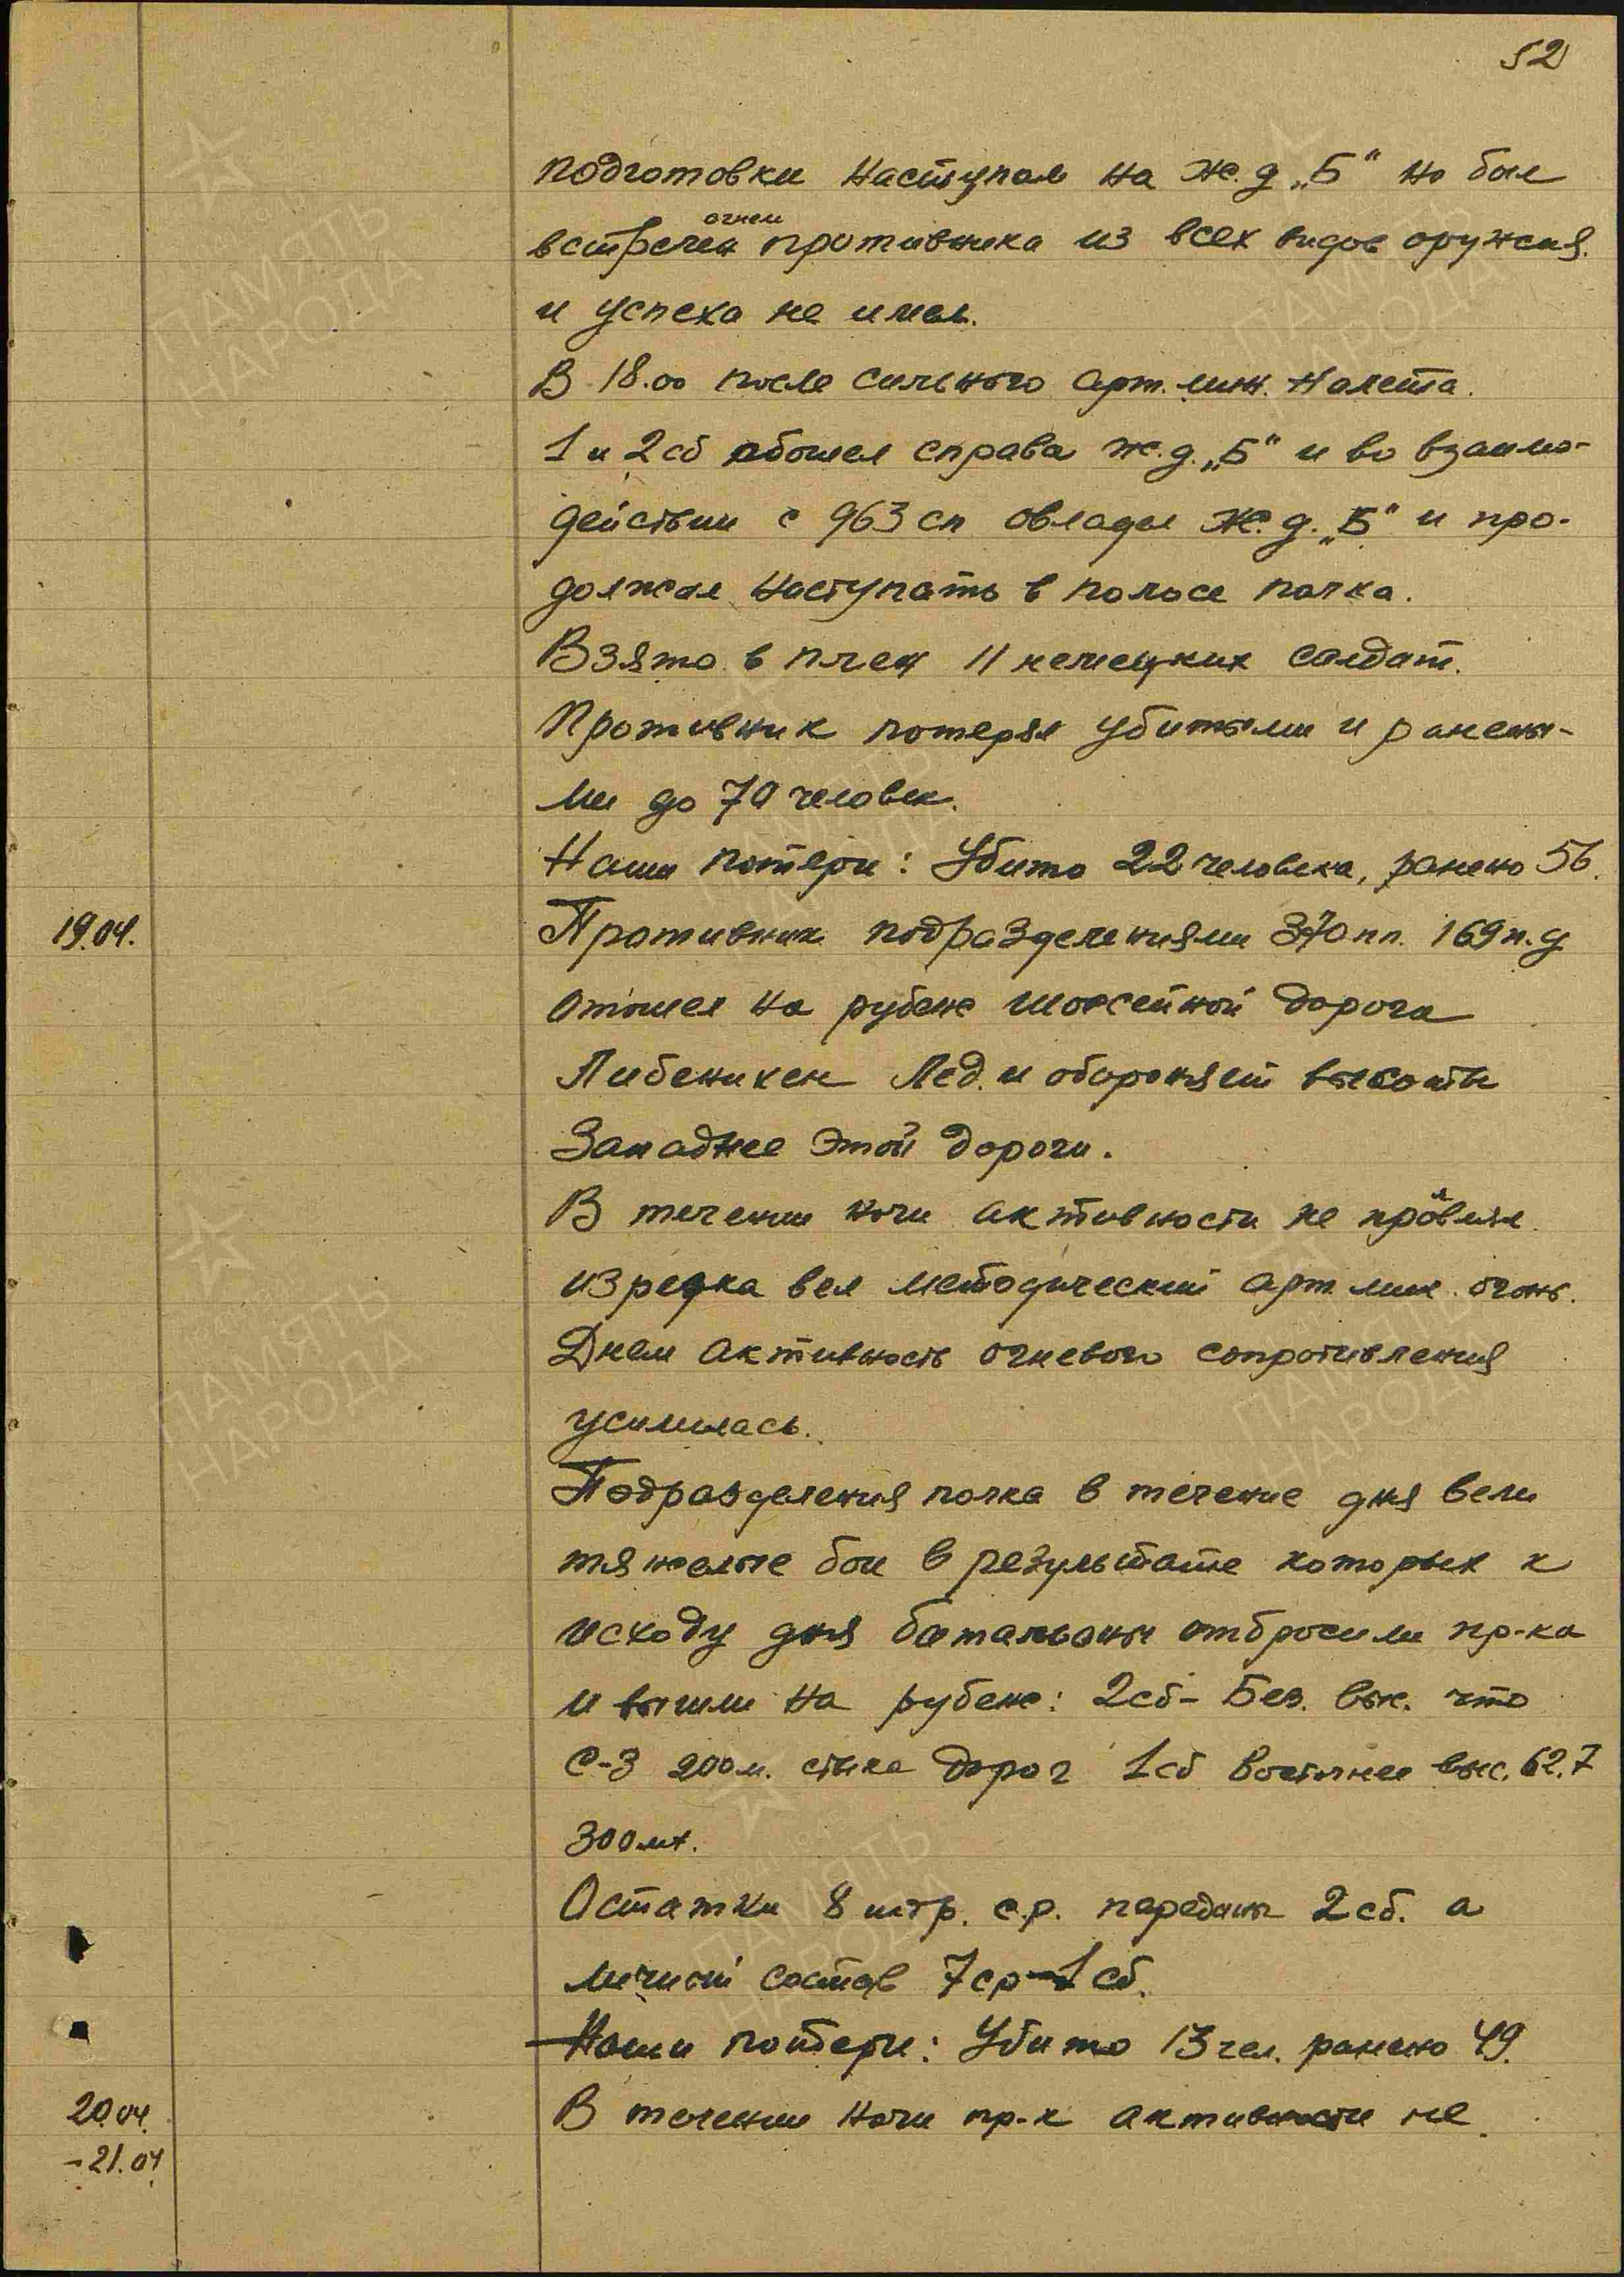 52
подготовки наступал на ж.д „Б" но был
огнем
встречен противника из всех видов оружия.
и успеха не имел.
В 18.00 после сильного арт. мин. налета.
1 и 2 сб обошел справа ж.д. „Б" и во взаимо-
действии с 963 сп овладел ж.д. „Б" и про-
должал наступать в полосе полка.
Взято в плен 11 немецких солдат.
Противник потерял убитыми и ранены-
ми до 70 человек.
Наши потери: Убито 22 человека, ранено 56.
19.04. Противник подразделениями 370 пп. 169 п.д
отошел на рубеж шоссейной дорога
Либеникен Лед. и обороняет высоты
Западнее этой дороги.
В течении ночи активности не проявлял.
изредка вел методический арт. мин. огонь.
Днем активность огневого сопротивления
усилилась.
Подразделения полка в течение дня вели
тяжелые бои в результате которых к
исходу дня батальоны отбросили пр-ка
и вышли на рубеж: 2сб- Без. выс. что
С-З 200 м. стыка дорог 1сб восточнее выс. 62.7
300 мт.
Остатки 8 штр. с.р. переданы 2 сб. а
личный состав 7 ср-1 сб.
Наши потери: Убито 13 чел. ранено 49.
20.04. В течении ночи пр-к активности не
-21.04
ПАМЯТЬ
НАРОДА
ПАМЯТЬ
НАРОДА
ПАМЯТЬ
НАРОДА
ПАМЯТЬ
НАРОДА
ПАМЯТЬ
НАРОДА
ПАМЯТЬ
НАРОДА